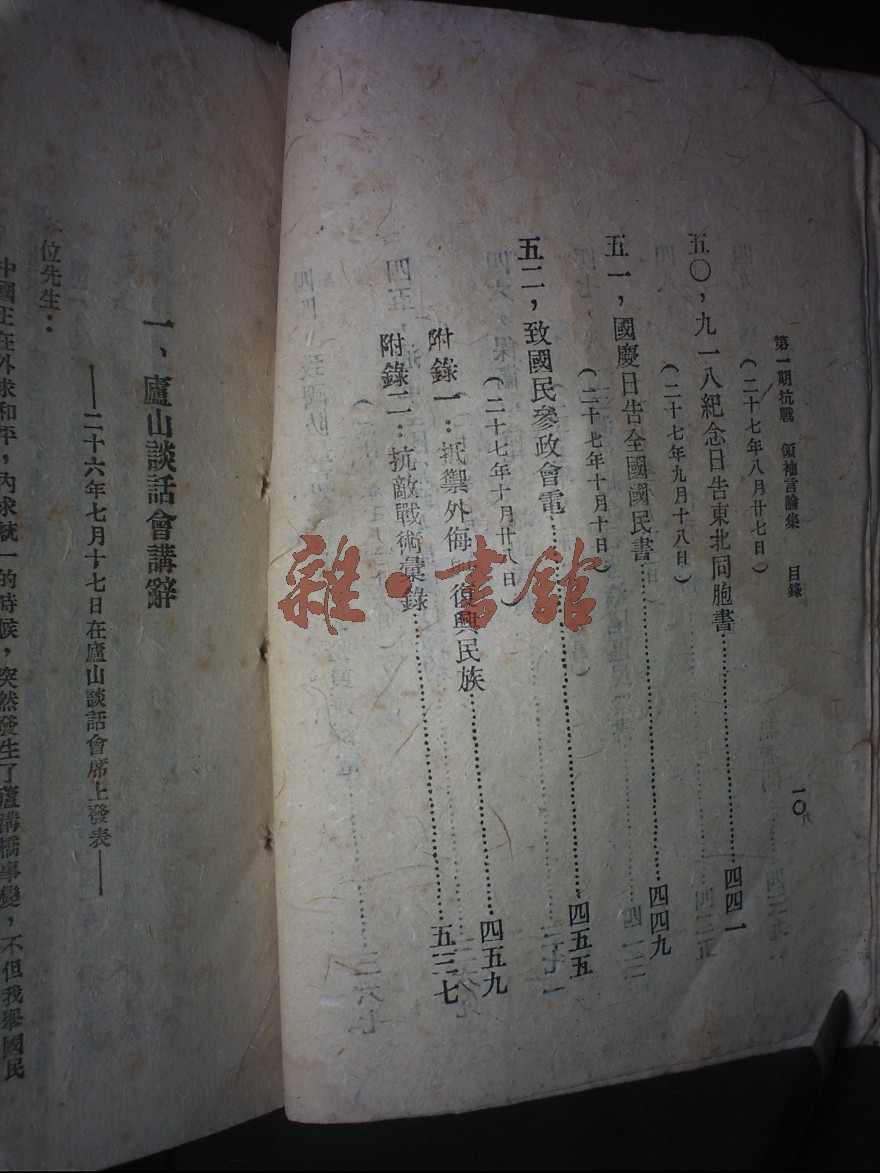 第一期抗戰　領袖言論集　目錄
一〇
（二十七年八月廿七日）
五〇，九一八紀念日告東北同胞書……四四一
（二十七年九月十八日）
五一，國慶日告全國國民書……四四九
（二十七年十月十日）
五二，致國民參政會電……四五五
（二十七年十月廿八日）
附錄一：抵禦外侮與復興民族……四五九
附錄二：抗敵戰術彙錄……五三七
一、廬山談話會講辭
——二十六年七月十七日在廬山談話會席上發表——
位先生：
中國正在外求和平，內求統一的時候，突然發生了蘆溝橋事變，不但我舉國民
雜·書館